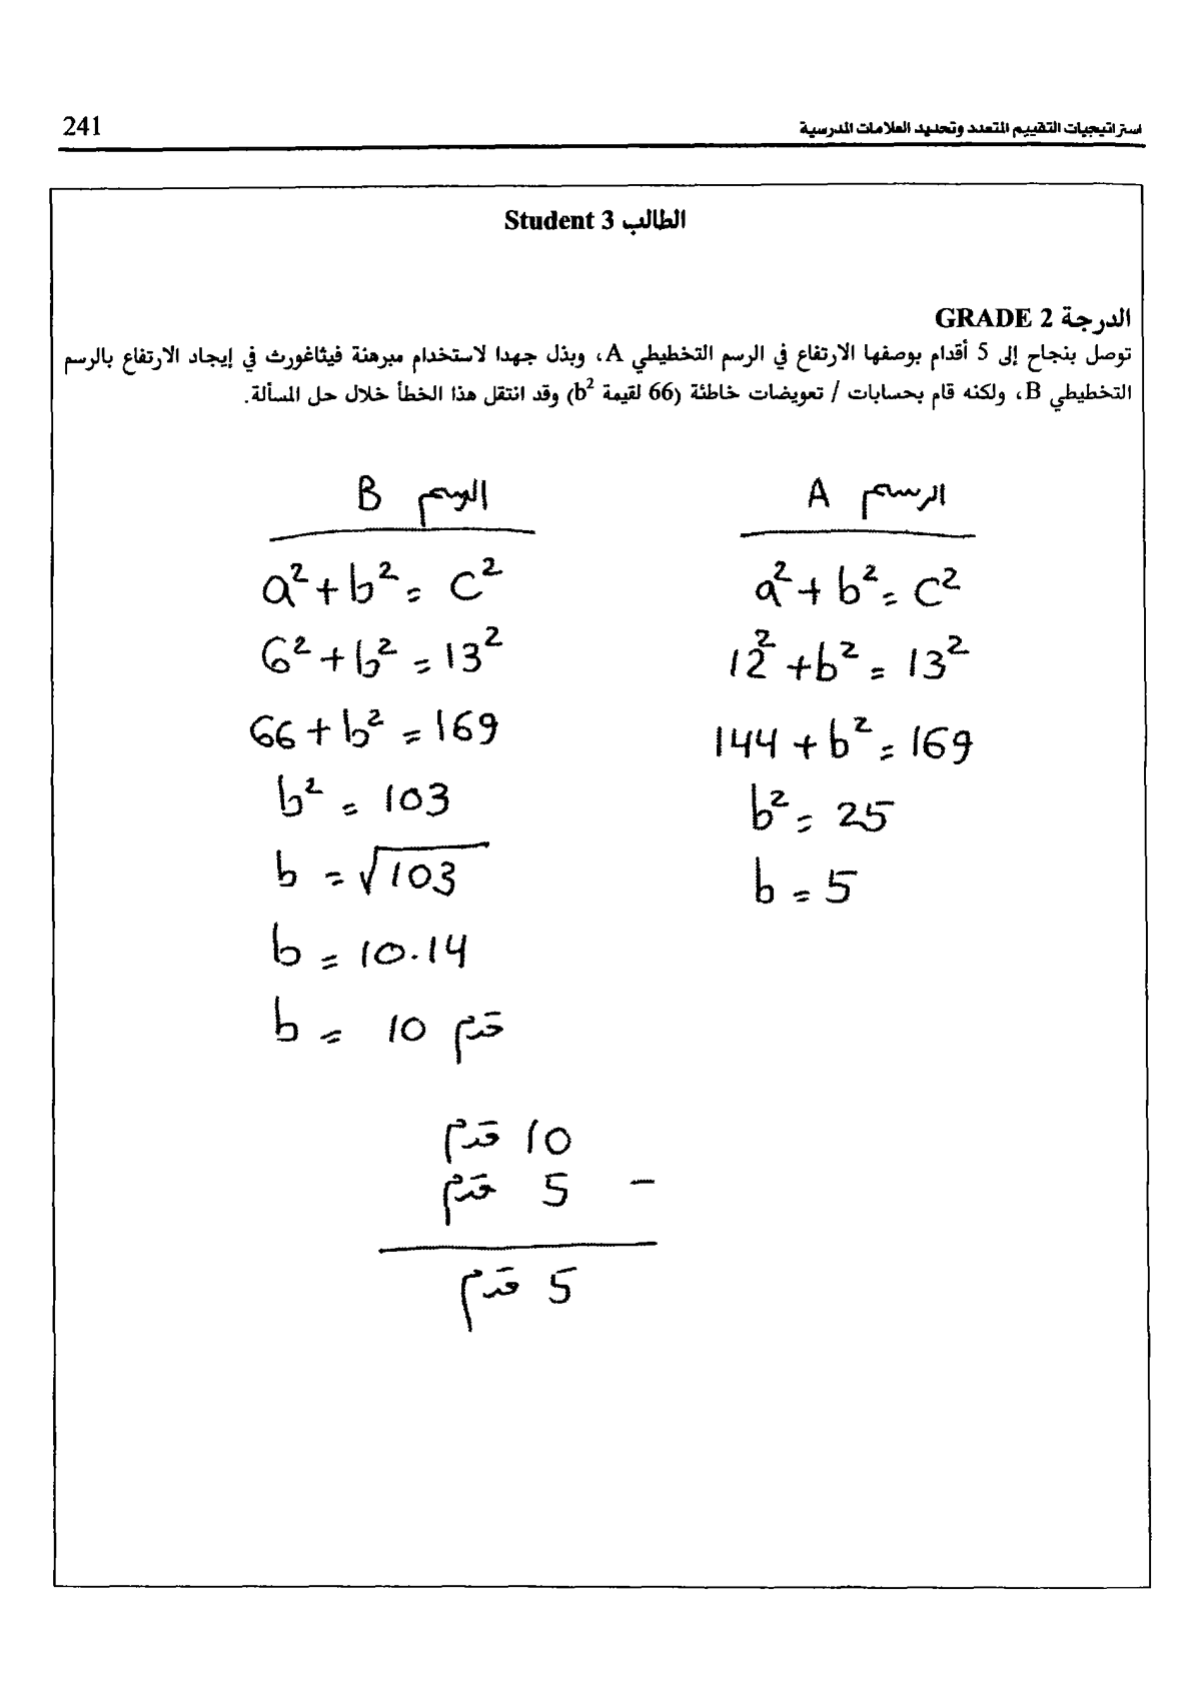 241
استراتيجيات التقييم المتعدد وتحديد العلامات المدرسية
الطالب Student 3
الدرجة GRADE 2
توصل بنجاح إلى 5 أقدام بوصفها الارتفاع في الرسم التخطيطي A، وبذل جهدا لاستخدام مبرهنة فيثاغورث في إيجاد الارتفاع بالرسم
التخطيطي B، ولكنه قام بحسابات / تعويضات خاطئة (66 لقيمة b²) وقد انتقل هذا الخطأ خلال حل المسألة.
الرسم A
a² + b² = c²
12² + b² = 13²
144 + b² = 169
b² = 25
b = 5
الرسم B
a² + b² = c²
6² + b² = 13²
66 + b² = 169
b² = 103
b = √103
b = 10.14
b = 10 قدم
10 قدم
- 5 قدم
5 قدم